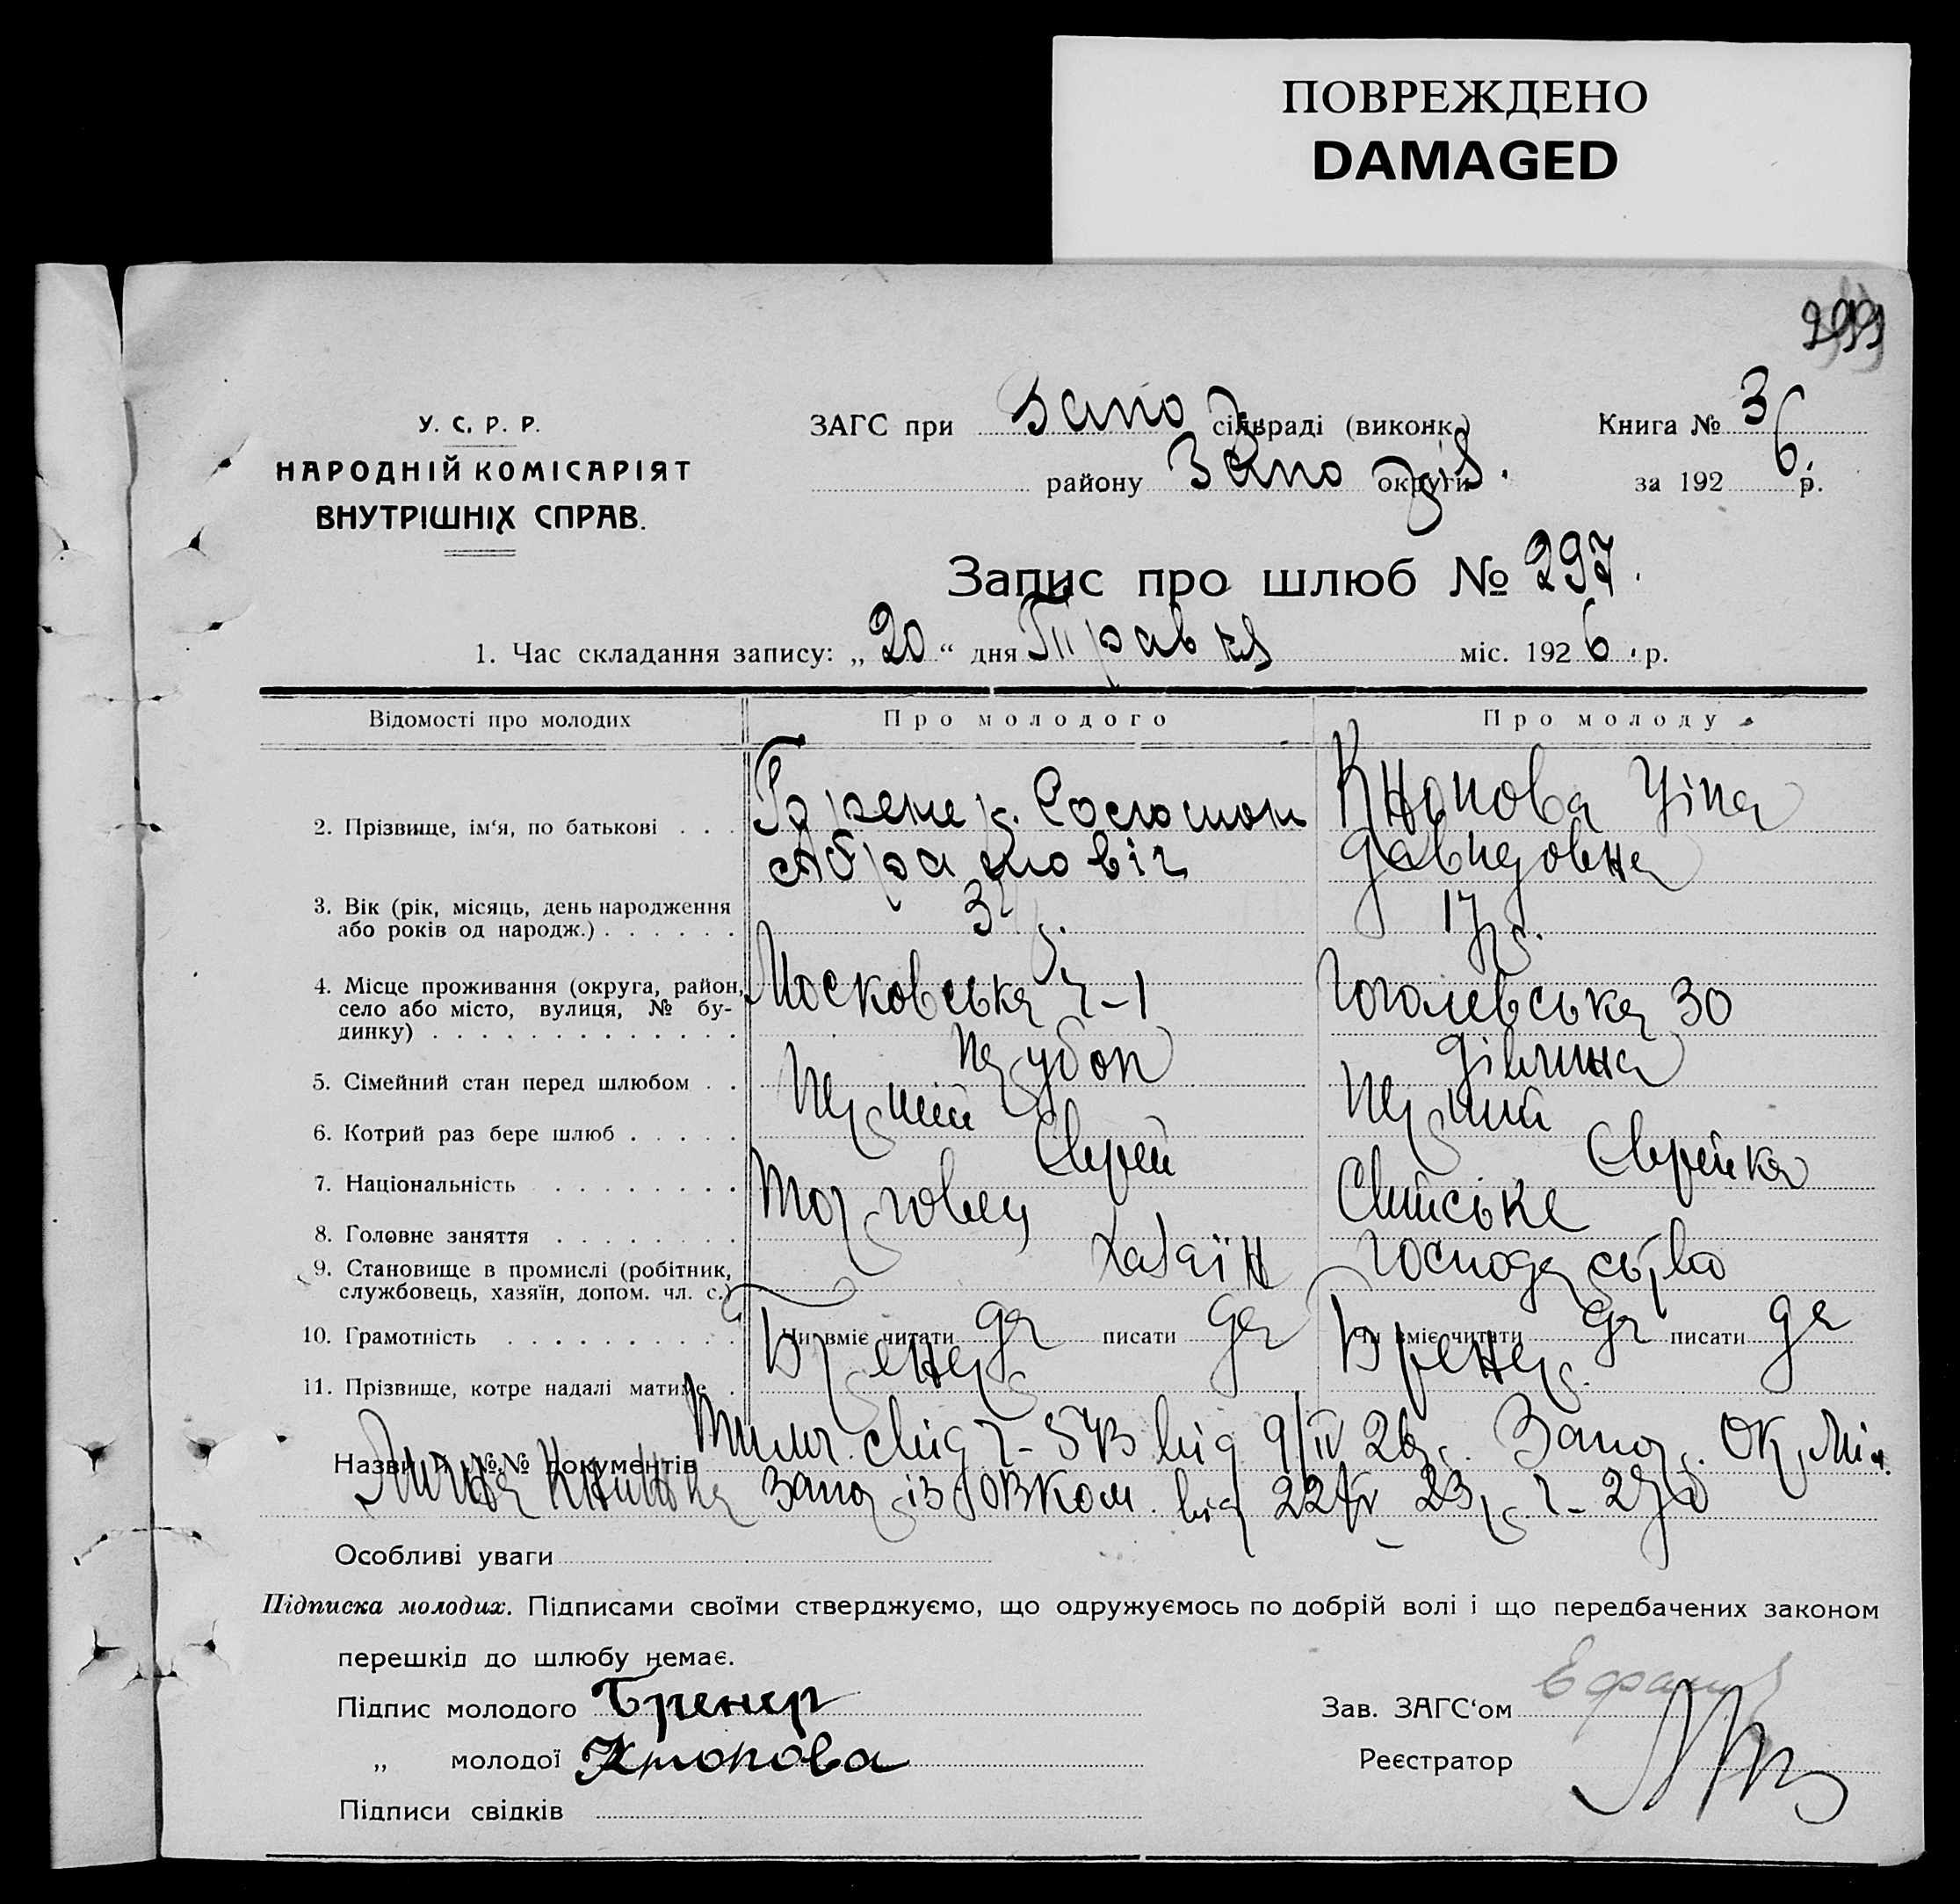 ПОВРЕЖДЕНО
DAMAGED
299
У. С. Р. Р.
НАРОДНІЙ КОМІСАРІЯТ
ВНУТРІШНІХ СПРАВ.
ЗАГС при Запор. сільраді (виконк.) Книга № 3
району Запоріз. округи за 1926 р.
Запис про шлюб № 297.
1. Час складання запису: „20“ дня Травня міс. 1926. р.
Відомості про молодих Про молодого Про молоду
2. Прізвище, ім‘я, по батькові . . . Бренер. Соломон Кнопова Ціпа
Абрамовіч Давидовна
3. Вік (рік, місяць, день народження
або років од народж.) . . . . . . 17 р.
4. Місце проживання (округа, район, Московська ч-1 Гоголевська 30
село або місто, вулиця, № бу-
динку) . . . . . . . . . . . . .
5. Сімейний стан перед шлюбом . . Парубок Дівчина
6. Котрий раз бере шлюб . . . . . Перший Перший
7. Національність . . . . . . . . Єврей Єврейка
8. Головне заняття . . . . . . . . Торговец
9. Становище в промислі (робітник, Хазяїн господарство
службовець, хазяїн, допом. чл. с.)
10. Грамотність . . . . . . . . . . Чи вміє читати да писати да Чи вміє читати да писати да
11. Прізвище, котре надалі матиме . Бренер Бренер.
Назви й №№ документів свід ч- від 9/IV 26р. Запор. Ок.
Книжка Запор від 23р. ч-
Особливі уваги
Підписка молодих. Підписами своїми стверджуємо, що одружуємось по добрій волі і що передбачених законом
перешкід до шлюбу немає.
Підпис молодого Бренер Зав. ЗАГС‘ом
„ молодої Кнопова Реєстратор
Підписи свідків